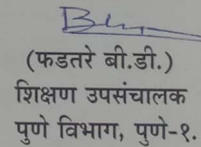 (फडतरे बी.डी.)
शिक्षण उपसंचालक
पुणे विभाग, पुणे-१.